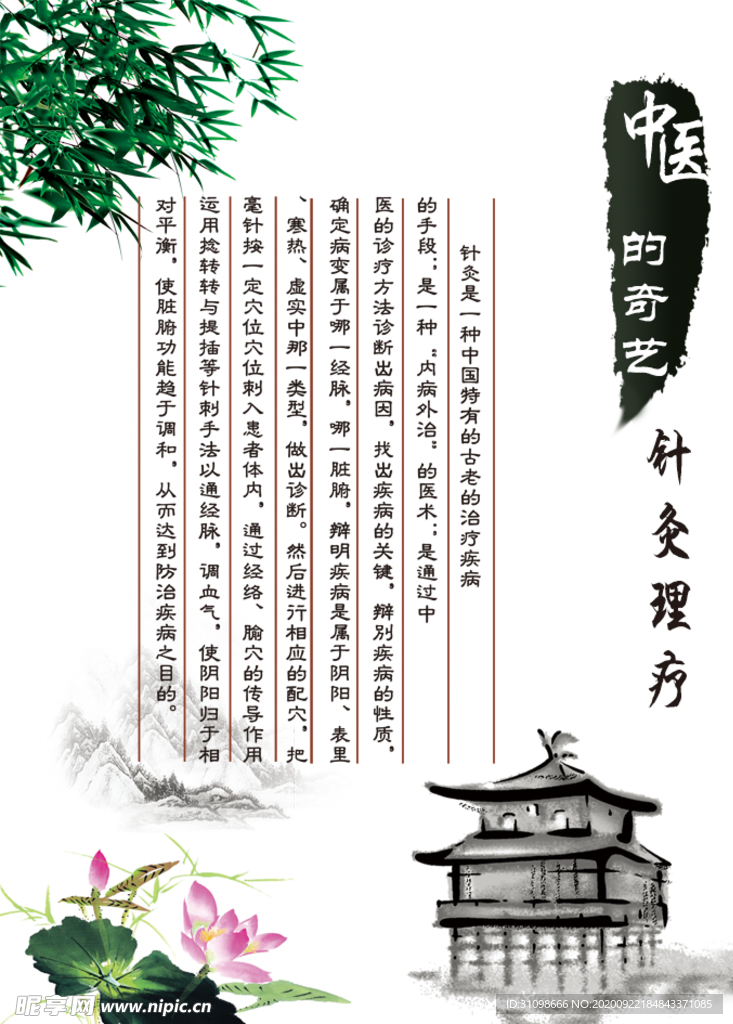 中医
的奇艺
针灸理疗
针灸是一种中国特有的古老的治疗疾病
的手段；是一种“内病外治”的医术；是通过中
医的诊疗方法诊断出病因，找出疾病的关键，辩别疾病的性质，
确定病变属于哪一经脉，哪一脏腑，辩明疾病是属于阴阳、表里
、寒热、虚实中那一类型，做出诊断。然后进行相应的配穴，把
毫针按一定穴位穴位刺入患者体内，通过经络、腧穴的传导作用
运用捻转转与提插等针刺手法以通经脉，调血气，使阴阳归于相
对平衡，使脏腑功能趋于调和，从而达到防治疾病之目的。
昵享网 www.nipic.cn
ID:31098666 NO:20200922184843371085